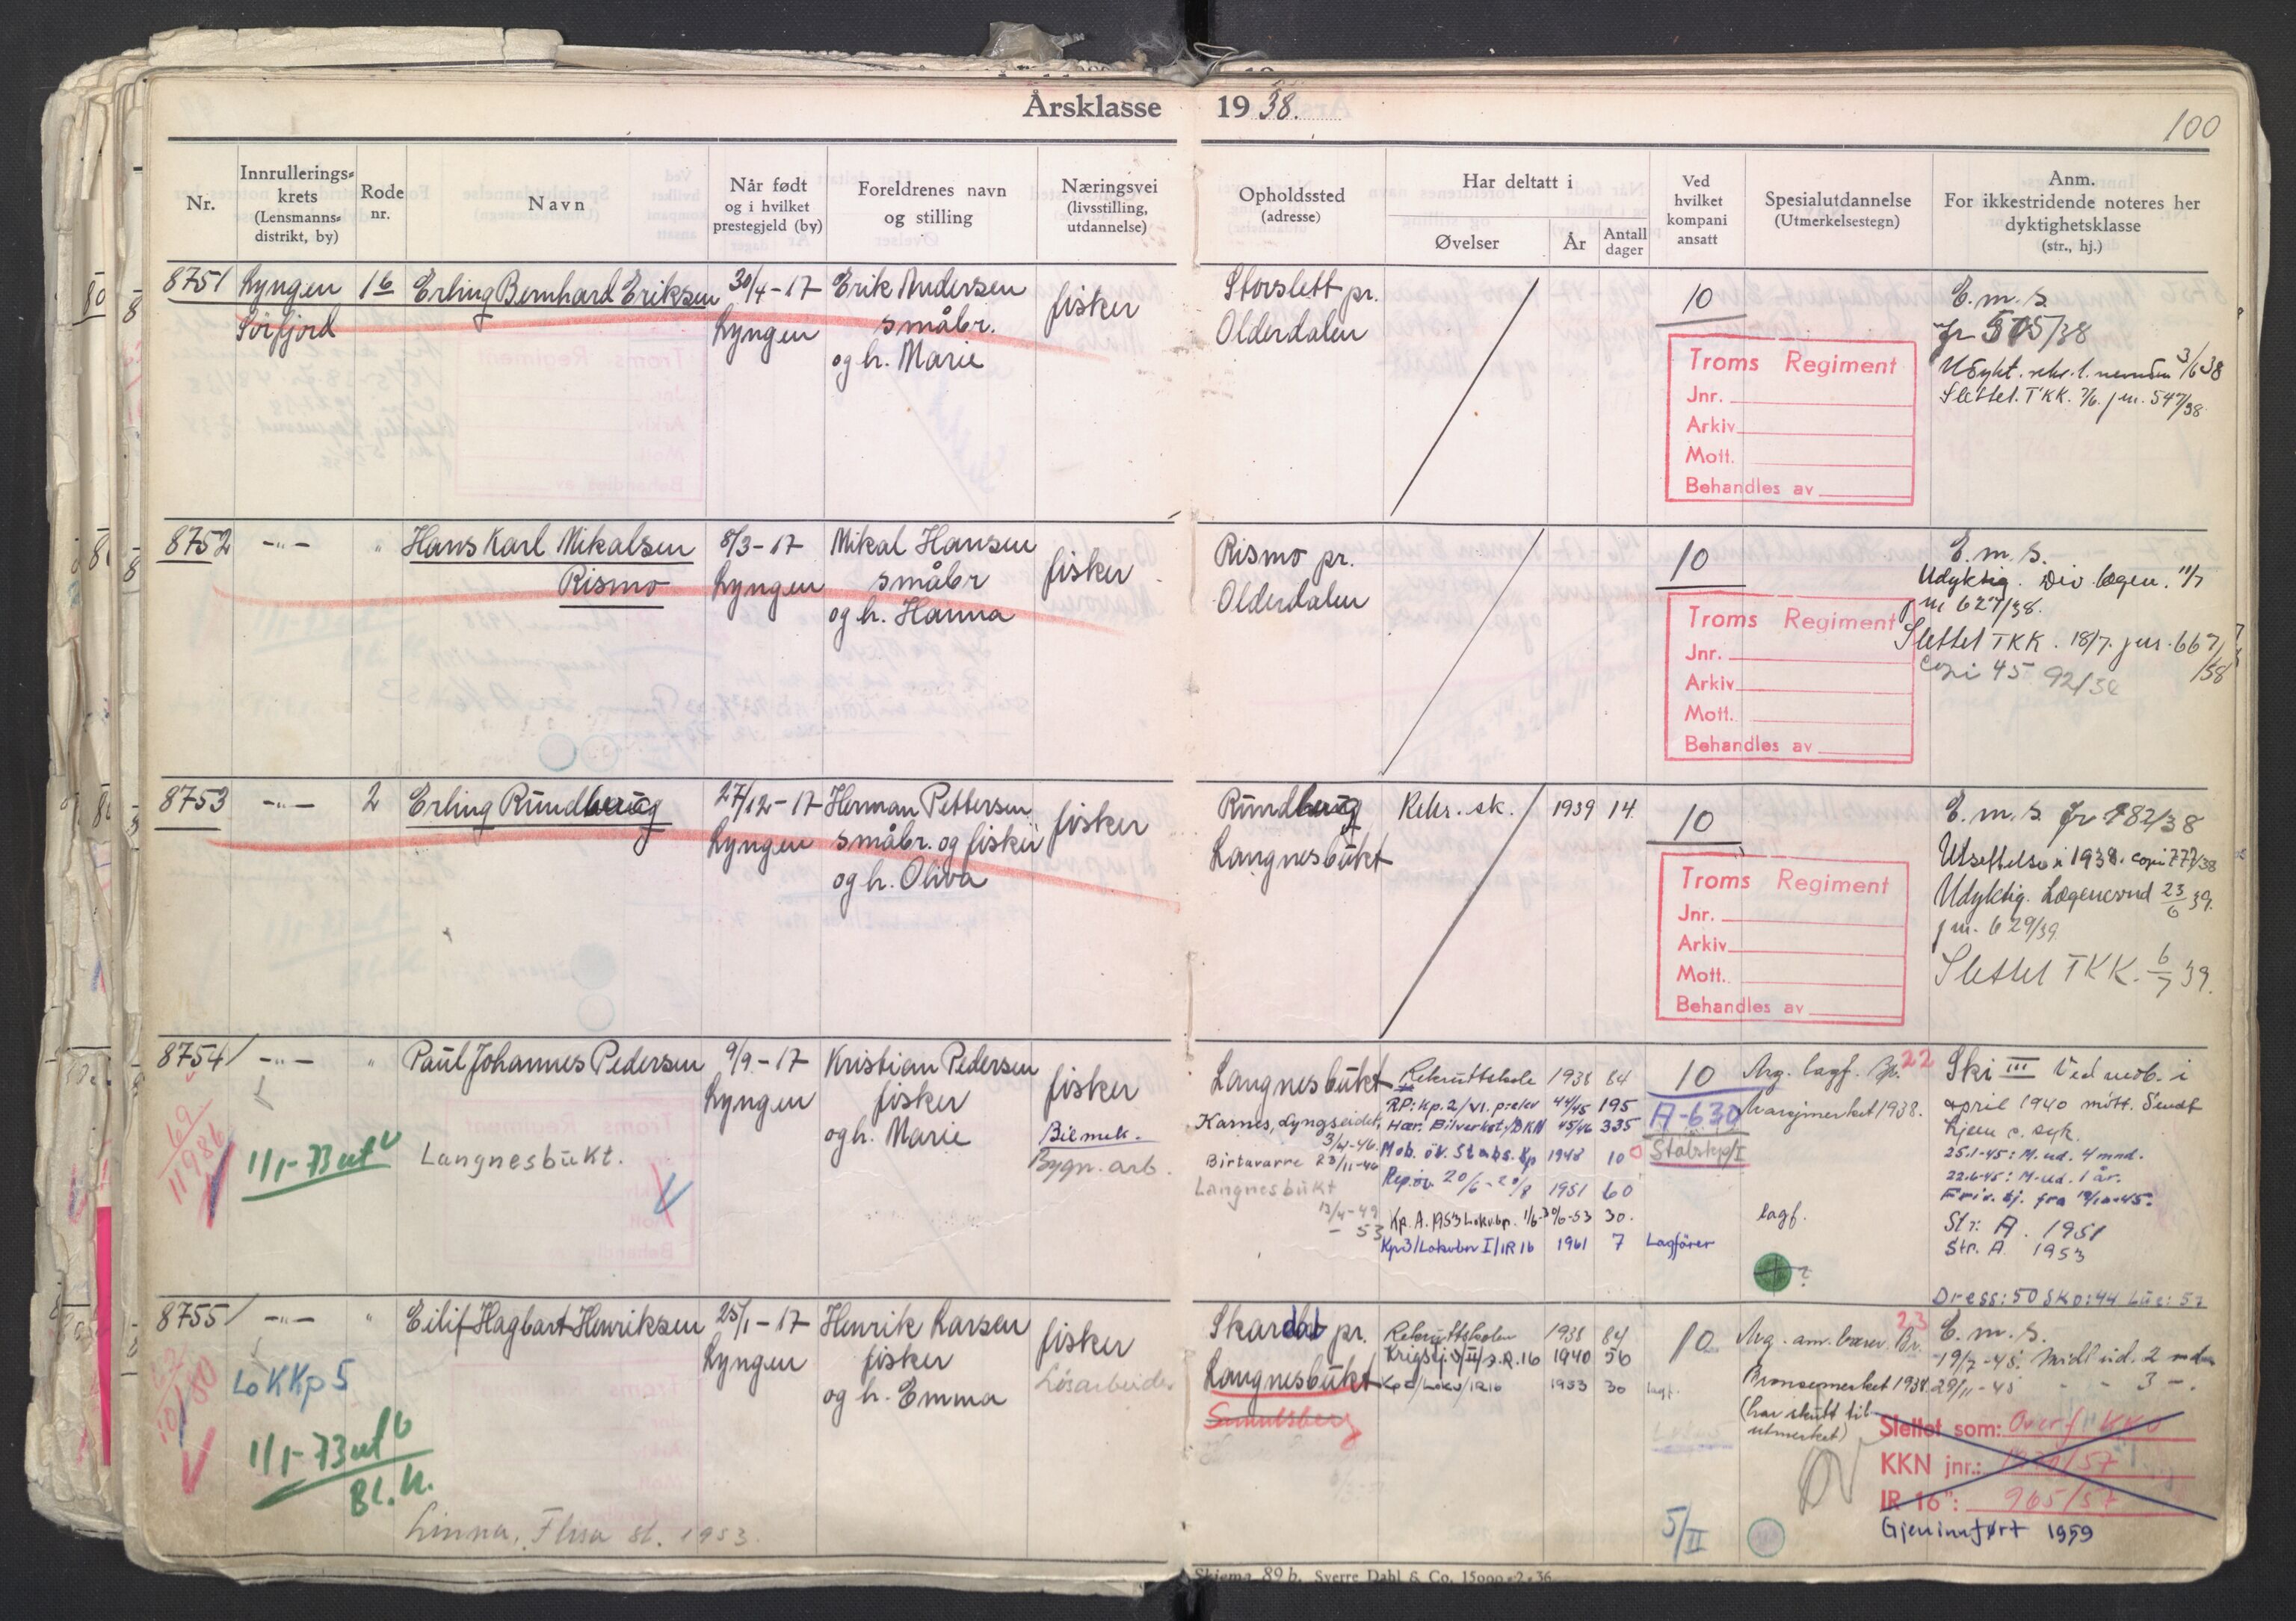 Årsklasse 1938.
100
Nr.
Innrullerings-
krets
(Lensmanns-
distrikt, by)
Rode
nr.
Navn
Når født
og i hvilket
prestegjeld (by)
Foreldrenes navn
og stilling
Næringsvei
(livsstilling,
utdannelse)
Opholdssted
(adresse)
Har deltatt i
Øvelser
År
Antall
dager
Ved
hvilket
kompani
ansatt
Spesialutdannelse
(Utmerkelsestegn)
Anm.
For ikkestridende noteres her
dyktighetsklasse
(str., hj.)
8751 Lyngen 16 Erling Bernhard Eriksen 30/4-17 Erik Andersen fisker
Sörfjord Lyngen småbr.
og h. Marie
Storslett pr.
Olderdalen
10
E. m. s.
Troms Regiment
Jnr.
Arkiv
Mott.
Behandles av
Slettet. TKK. 7/6. jnr. 547/38
8752 -"- " Hans Karl Mikalsen 8/3-17 Mikal Hansen fisker
Rismo Lyngen småbr
og h. Hanna
Rismo pr.
Olderdalen
10
E. m. s.
Udyktig. Div. lægen. 11/7
jnr 627/38.
Slettet TKK. 18/7. jnr. 667/38
Troms Regiment
Jnr.
Arkiv
Mott.
Behandles av
8753 -"- 2 Erling Rundberg 27/12-17 Herman Pettersen fisker
Lyngen småbr. og fisker
og h. Oliva
Rundberg
Langnesbukt
Rekr. sk. 1939 14
10
E. m. s. jr 782/38
Utsettelse i 1938. copi 777/38
Udyktig. Lægenevnd 23/6 39.
jnr. 629/39
Slettet TKK. 6/7 39.
Troms Regiment
Jnr.
Arkiv
Mott.
Behandles av
8754 -"- " Paul Johannes Pedersen 9/9-17 Kristian Pedersen fisker
Lyngen fisker
og h. Marie
Bilmek.
Bygn. arb.
69
11986
1/1-73 ut
Langnesbukt.
Langnesbukt
Karnes, Lyngseidet,
3/4-46.
Birtavarre 23/11-46
Langnesbukt
13/4-49
- 53
Rekruttskole 1938 84
RP: Kp. 2/VI. 44/45 195
Hær. Bilverkst./DKN 45/46 335
Mob. öv. Stabs. Kp 1948 10
Rep. öv. 20/6-20/8 1951 60
Kp. A. 1953 Lokvbn. 1/6-30/6-53 30.
Kp3/Lokvbn I/IR 16 1961 7 Lagförer
10
A-630
Stabskp/I
Arg. lagf. Gr. 22
Marsjmerket 1938.
lagf.
Ski III Ved mob. i
april 1940 mött. Sendt
hjem p. syk.
25.1-45: M. ud. 4 mnd.
22.6-45: M-ud. 1 år.
Str: A. 1951
Str. A 1953
Dress: 50 Sko: 44 Lue: 57
8755 -"- " Eilif Hagbart Henriksen 25/1-17 Henrik Larsen fisker
Lyngen fisker Lösarbeider
og h. Emma
LoKKp 5
1/1-73 ut
Bl. K.
Linna, Flisa st. 1953.
Skardal pr.
Langnesbukt
Rekruttskolen 1938 84
Krigstj. 3/II/I.R.16 1940 56
Kp /Lokv/IR16 1953 30 lagf.
10
5/II
23
Bronsemerket 1938.
(har skutt til
utmerket)
E. m. s.
19/7-45. Midl. ud. 2 mdr
29/11-45 - - 3 -.
Slettet som: Overf. KKO
KKN jnr.:
IR 16": 965/57
Gjeninnført 1959
Skjema 89 b. Sverre Dahl & Co. 15000-2-36